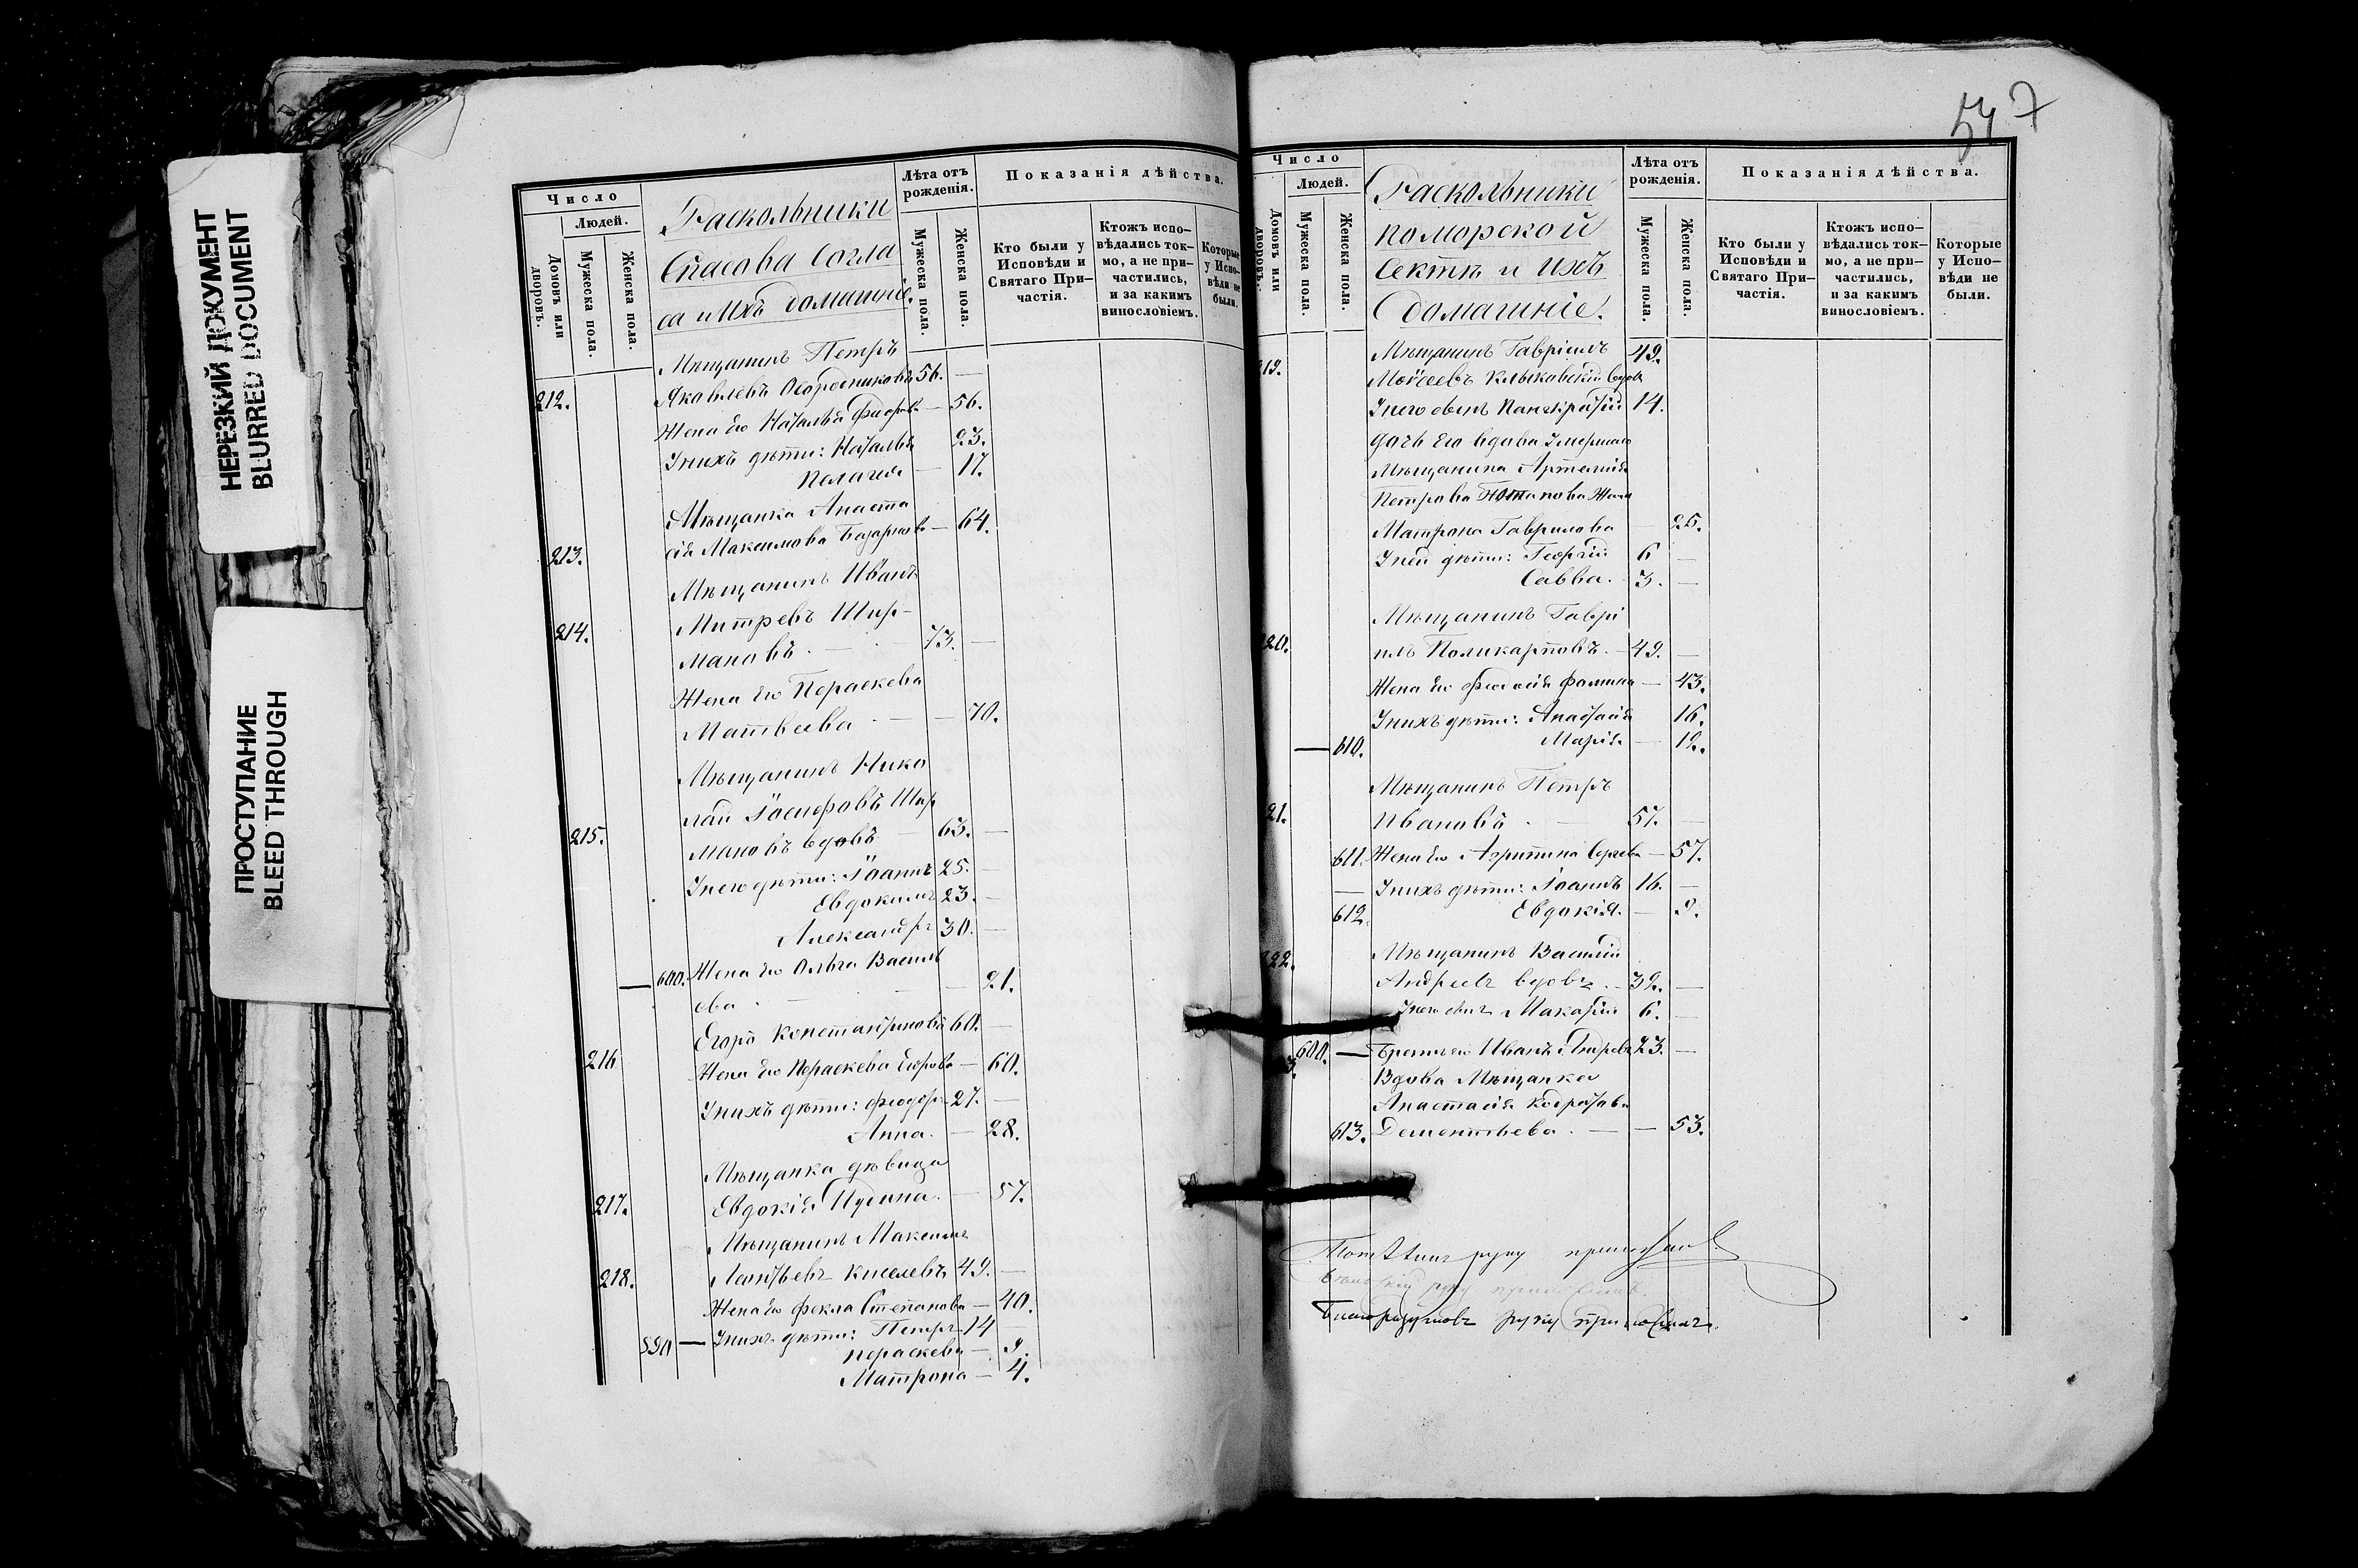 НЕРЕЗКИЙ ДОКУМЕНТ
BLURRED DOCUMENT
ПРОСТУПАНИЕ
BLEED THROUGH
Число
Людей.
Домовъ или дворовъ.
Мужеска пола.
Женска пола.
Раскольники
Спасова Согла
са и Ихъ домашніе
Лѣта отъ рожденія.
Мужеска пола.
Женска пола.
Показанія дѣйства.
Кто были у Исповѣди и Святаго При-
частія.
Ктожъ испо-
вѣдались ток-
мо, а не при-
частились,
и за какимъ
винословіемъ.
Которые
у Испо-
вѣди не
были.
Мѣщанинъ Петръ
212. Яковлевъ Огородниковъ 56. —
Жена Его Наталья Федорова — 56.
У нихъ дѣти: Наталья 23.
Пелагея — 17.
Мѣщанка Анаста
213. сія Максимова Базарнова — 64.
Мѣщанинъ Иванъ
214. Митревъ Шир-
мановъ. — 73. —
Жена Его Пераскева
Матвеева — — 70.
Мѣщанинъ Нико
лай Іосифовъ Шир
215. мановъ вдовъ — 63. —
У него дѣти: Іоаннъ 25. —
Евдокимъ 23. —
Александръ 30. —
— 600. Жена Его Ольга Василь
ева — — 21.
Егоръ Константиновъ 60. —
216 Жена Его Пераскева Егорова — 60.
У нихъ дѣти: Феодоръ 27. —
Анна. — 28.
Мѣщанка дѣвица
217. Евдокія — 57.
Мѣщанинъ Максимъ
218. Леонтьевъ Киселевъ 49. —
Жена Его Фекла Степанова — 40.
590 — У нихъ дѣти: Петръ 14 —
Пераскева — 9.
Матрона — 4.
547
Число
Людей.
Домовъ или дворовъ.
Мужеска пола.
Женска пола.
Раскольники
поморской
секты и Ихъ
домашніе.
Лѣта отъ рожденія.
Мужеска пола.
Женска пола.
Показанія дѣйства.
Кто были у Исповѣди и Святаго При-
частія.
Ктожъ испо-
вѣдались ток-
мо, а не при-
частились,
и за какимъ
винословіемъ.
Которые
у Испо-
вѣди не
были.
19. Мѣщанинъ Гавріилъ 49.
Моѵсеевъ вдовъ
У него сынъ Панкратій 14.
Дочь Его вдова Умершаго
Мѣщанина Артемія
Петрова Потапова Жена
Матрона Гаврилова — 25.
У ней дѣти: Георгій 6 —
Савва. 3. —
Мѣщанинъ Гаврі
20. илъ Поликарповъ. — 49. —
Жена Его Феодосія Фомина — 43.
У нихъ дѣти: Анастасія 16.
— 610. Марія. — 12.
Мѣщанинъ Петръ
21. Ивановъ — 57. —
611. Жена Его Агрипина Сергева — 57.
— У нихъ дѣти: Іоаннъ 16. —
612. Евдокія. — 9.
22. Мѣщанинъ Василій
Андреевъ вдовъ. — 32. —
У него сынъ Макарій 6. —
3. 600. — Братъ его Иванъ Андреевъ 23. —
Вдова Мѣщанка
Анастасія Кодратова
613. Дементьева. — — 53.
руку приложилъ.
руку приложилъ.
Благоразумовъ руку приложилъ.